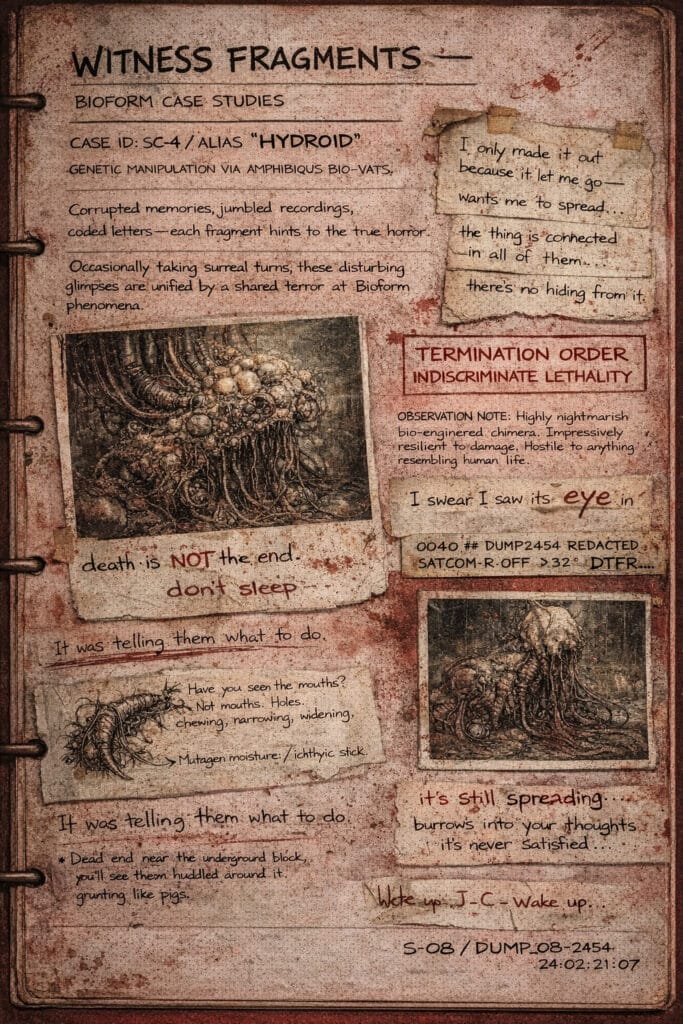 WITNESS FRAGMENTS —
BIOFORM CASE STUDIES
CASE ID: SC-4 / ALIAS "HYDROID"
GENETIC MANIPULATION VIA AMPHIBIQUS BIO-VATS,
Corrupted memories, jumbled recordings,
coded letters—each fragment hints to the true horror.
Occasionally taking surreal turns, these disturbing
glimpses are unified by a shared terror at Bioform
phenomena.
I only made it out
because it let me go—
wants me to spread...
the thing is connected
in all of them....
there's no hiding from it.
TERMINATION ORDER
INDISCRIMINATE LETHALITY
OBSERVATION NOTE: Highly nightmarish
bio-enginered chimera. Impressively
resilient to damage. Hostile to anything
resembling human life.
I swear I saw its eye in
0040 ## DUMP2454 REDACTED
SATCOM-R-OFF >32° DTFR....
death is NOT the end.
don't sleep
It was telling them what to do.
Have you seen the mouths?
Not mouths. Holes.
chewing, narrowing, widening.
Mutagen moisture:/ichthyic stick.
It was telling them what to do.
* Dead end near the underground block,
you'll see them huddled around it.
grunting like pigs.
it's still spreading....
burrows into your thoughts
it's never satisfied...
Woke up..J-C-Wake up...
S-08 / DUMP_08-2454
24:02:21:07